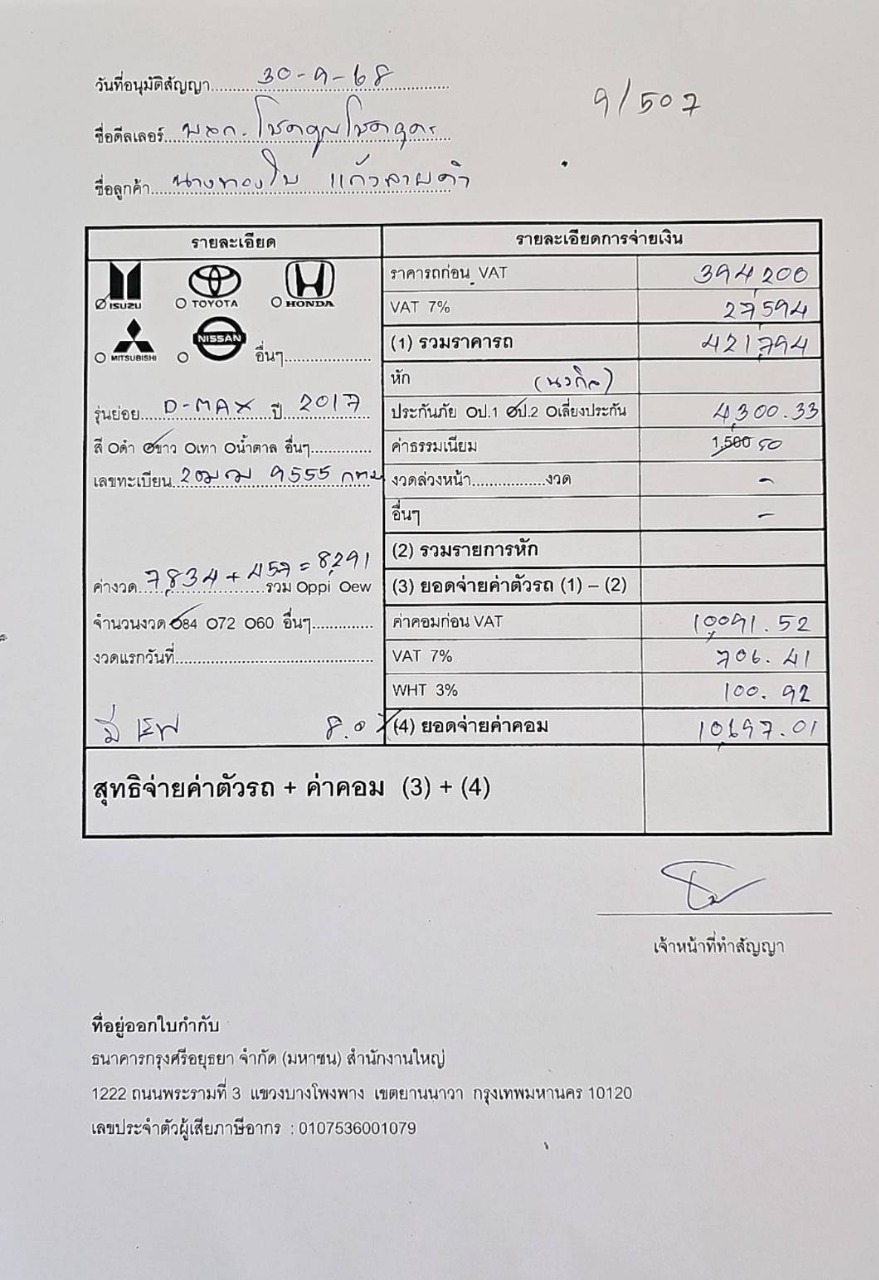 วันที่อนุมัติสัญญา 30-9-68
9/507
ชื่อดีลเลอร์ หจก. โชคคูณโชคอุดร
ชื่อลูกค้า นางทองใบ แก้วลายคำ
รายละเอียด
รายละเอียดการจ่ายเงิน
ISUZU TOYOTA HONDA
MITSUBISHI NISSAN อื่นๆ
รุ่นย่อย D-MAX ปี 2017
สี ดำ ขาว เทา น้ำตาล อื่นๆ
เลขทะเบียน 9555 กทม
ค่างวด 7,834 + 457 = 8,291 รวม ppi ew
จำนวนงวด 84 72 60 อื่นๆ
งวดแรกวันที่
มี
ราคารถก่อน VAT 394,200
VAT 7% 27,594
(1) รวมราคารถ 421,794
หัก
ประกันภัย ป.1 ป.2 เลี่ยงประกัน 4,300.33
ค่าธรรมเนียม 1,500 50
งวดล่วงหน้า งวด -
อื่นๆ -
(2) รวมรายการหัก
(3) ยอดจ่ายค่าตัวรถ (1) – (2)
ค่าคอมก่อน VAT 10,091.52
VAT 7% 706.41
WHT 3% 100.92
(4) ยอดจ่ายค่าคอม 10,697.01
สุทธิจ่ายค่าตัวรถ + ค่าคอม (3) + (4)
เจ้าหน้าที่ทำสัญญา
ที่อยู่ออกใบกำกับ
ธนาคารกรุงศรีอยุธยา จำกัด (มหาชน) สำนักงานใหญ่
1222 ถนนพระรามที่ 3 แขวงบางโพงพาง เขตยานนาวา กรุงเทพมหานคร 10120
เลขประจำตัวผู้เสียภาษีอากร : 0107536001079